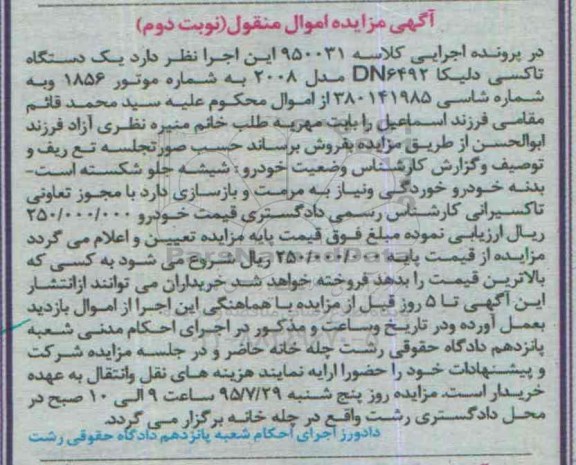 آگهی مزایده اموال منقول(نوبت دوم)
در پرونده اجرایی کلاسه ۹۵۰۰۳۱ این اجرا نظر دارد یک دستگاه
تاکسی دلیکا DN۶۴۹۲ مدل ۲۰۰۸ به شماره موتور ۱۸۵۶ وبه
شماره شاسی ۳۸۰۱۴۱۹۸۵ از اموال محکوم علیه سید محمد قائم
مقامی فرزند اسماعیل را بابت مهریه طلب خانم منیره نظری آزاد فرزند
ابوالحسن از طریق مزایده بفروش برساند حسب صورتجلسه تع ریف و
توصیف وگزارش کارشناس وضعیت خودرو: شیشه جلو شکسته است-
بدنه خودرو خوردگی ونیاز به مرمت و بازسازی دارد با مجوز تعاونی
تاکسیرانی کارشناس رسمی دادگستری قیمت خودرو ۲۵۰/۰۰۰/۰۰۰
ریال ارزیابی نموده مبلغ فوق قیمت پایه مزایده تعیین و اعلام می گردد
مزایده از قیمت پایه ۲۵۰/۰۰۰/۰۰۰ ریال شروع می شود به کسی که
بالاترین قیمت را بدهد فروخته خواهد شد خریداران می توانند ازانتشار
این آگهی تا ۵ روز قبل از مزایده با هماهنگی این اجرا از اموال بازدید
بعمل آورده ودر تاریخ وساعت و مذکور در اجرای احکام مدنی شعبه
پانزدهم دادگاه حقوقی رشت چله خانه حاضر و در جلسه مزایده شرکت
و پیشنهادات خود را حضورا ارایه نمایند هزینه های نقل وانتقال به عهده
خریدار است. مزایده روز پنج شنبه ۹۵/۷/۲۹ ساعت ۹ الی ۱۰ صبح در
محل دادگستری رشت واقع در چله خانه برگزار می گردد.
دادورز اجرای احکام شعبه پانزدهم دادگاه حقوقی رشت